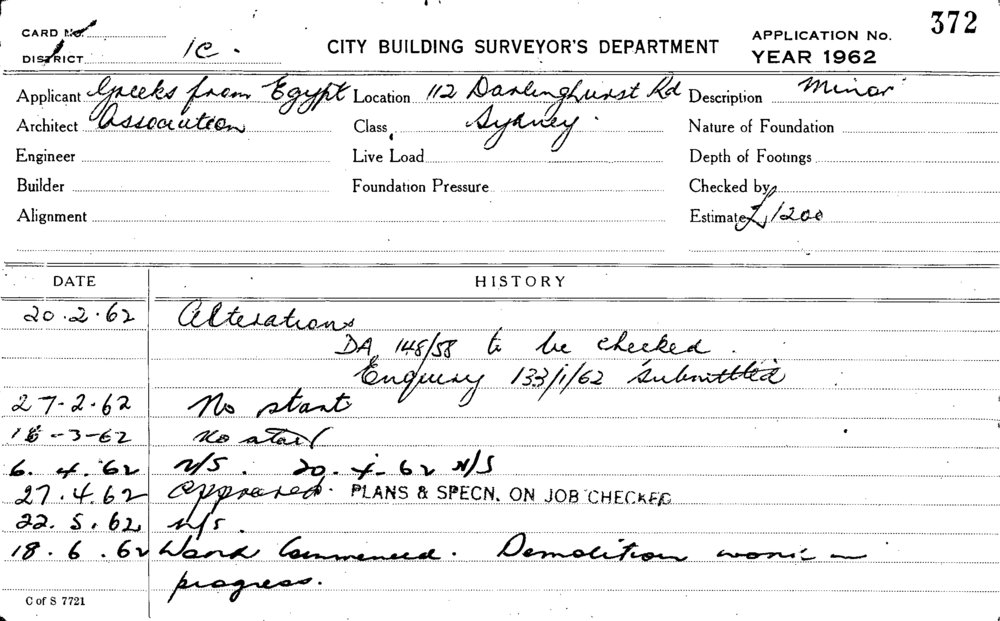 372
CARD No.
APPLICATION No.
DISTRICT 1C.
CITY BUILDING SURVEYOR'S DEPARTMENT
YEAR 1962
Applicant Greeks from Egypt Location 112 Darlinghurst Rd Description Minor
Architect Association Class Sydney. Nature of Foundation
Engineer Live Load Depth of Footings
Builder Foundation Pressure Checked by
Alignment Estimate £1200
DATE HISTORY
20.2.62 Alterations
DA 148/58 to be checked.
Enquiry 133/1/62 submitted
27-2-62 No start
-3-62 No start
6.4.62 N/S. 20-4-62 N/S
27.4.62 Approved. PLANS & SPECN. ON JOB CHECKED
22.5.62 N/S.
18.6.62 Work Commenced. Demolition work in
progress.
C of S 7721